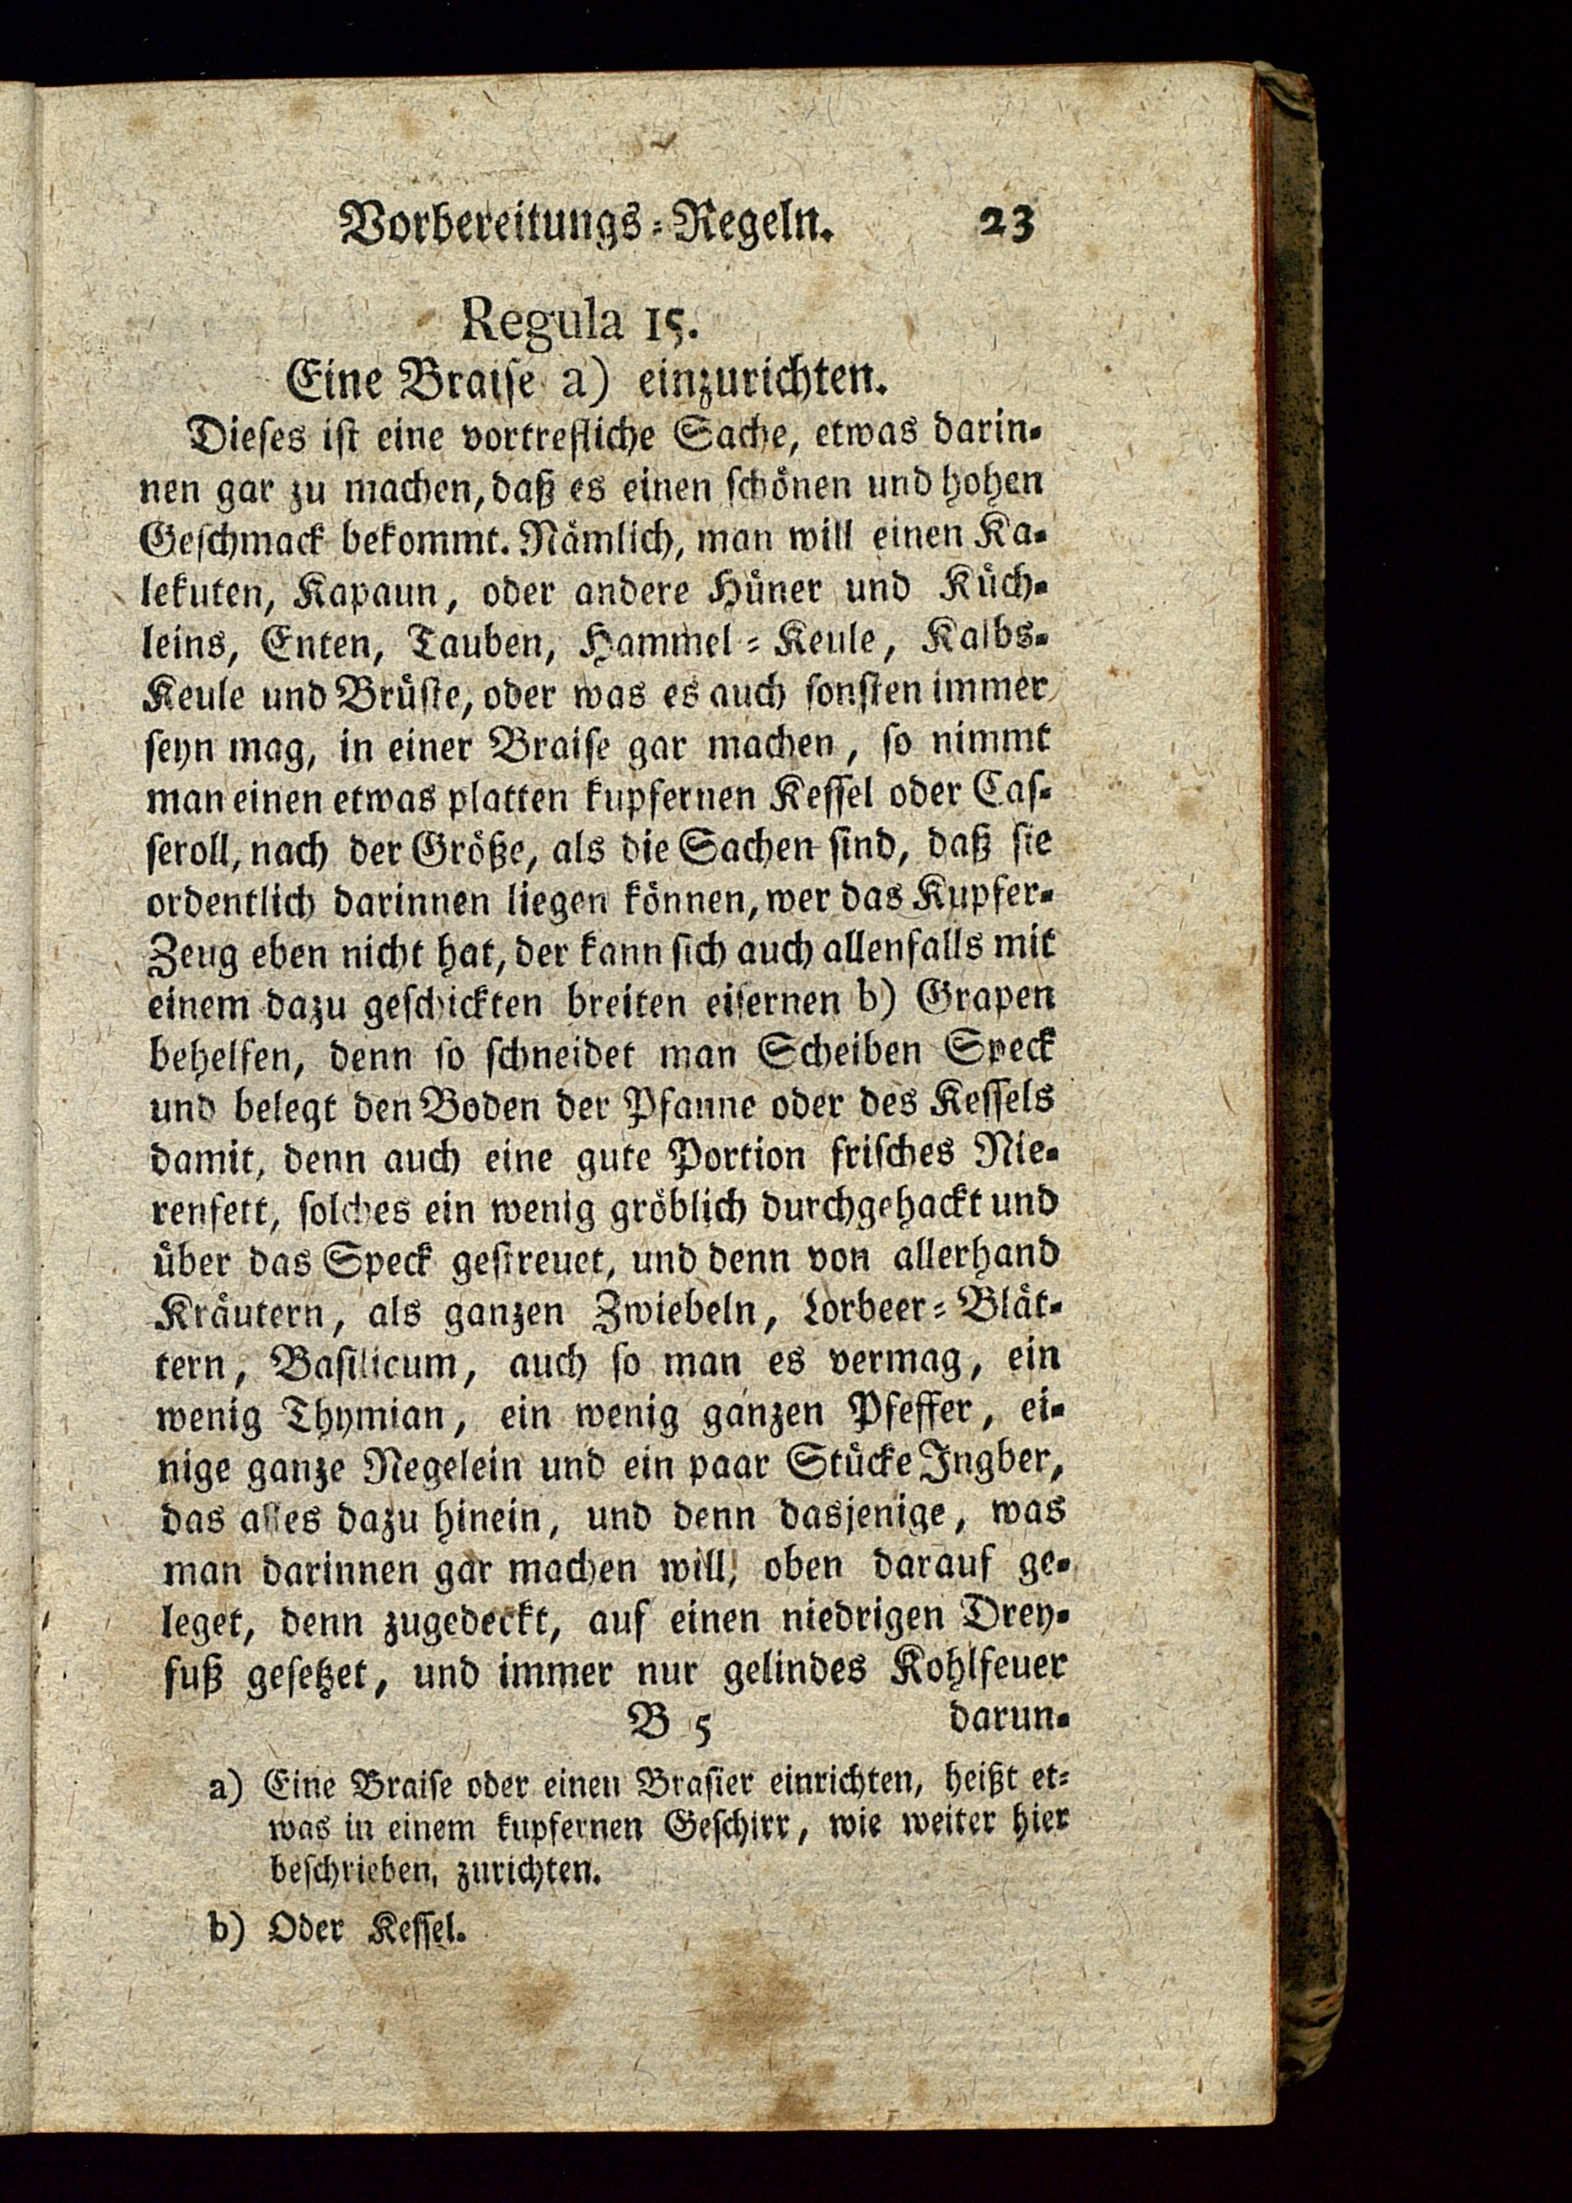 Vorbereitungs-Regeln. 23
Regula 15.
Eine Braise a) einzurichten.
Dieses ist eine vortrefliche Sache, etwas darin-
nen gar zu machen, daß es einen schönen und hohen
Geschmack bekommt. Nämlich, man will einen Ka-
lekuten, Kapaun, oder andere Hüner und Küch-
leins, Enten, Tauben, Hammel-Keule, Kalbs-
Keule und Brüste, oder was es auch sonsten immer
seyn mag, in einer Braise gar machen, so nimmt
man einen etwas platten kupfernen Kessel oder Cas-
seroll, nach der Größe, als die Sachen sind, daß sie
ordentlich darinnen liegen können, wer das Kupfer-
Zeug eben nicht hat, der kann sich auch allenfalls mit
einem dazu geschickten breiten eisernen b) Grapen
behelfen, denn so schneidet man Scheiben Speck
und belegt den Boden der Pfanne oder des Kessels
damit, denn auch eine gute Portion frisches Nie-
renfett, solches ein wenig gröblich durchgehackt und
über das Speck gestreuet, und denn von allerhand
Kräutern, als ganzen Zwiebeln, Lorbeer-Blät-
tern, Basilicum, auch so man es vermag, ein
wenig Thymian, ein wenig ganzen Pfeffer, ei-
nige ganze Negelein und ein paar Stücke Ingber,
das alles dazu hinein, und denn dasjenige, was
man darinnen gar machen will, oben darauf ge-
leget, denn zugedeckt, auf einen niedrigen Drey-
fuß gesetzet, und immer nur gelindes Kohlfeuer
B 5 darun-
a) Eine Braise oder einen Brasier einrichten, heißt et-
was in einem kupfernen Geschirr, wie weiter hier
beschrieben, zurichten.
b) Oder Kessel.